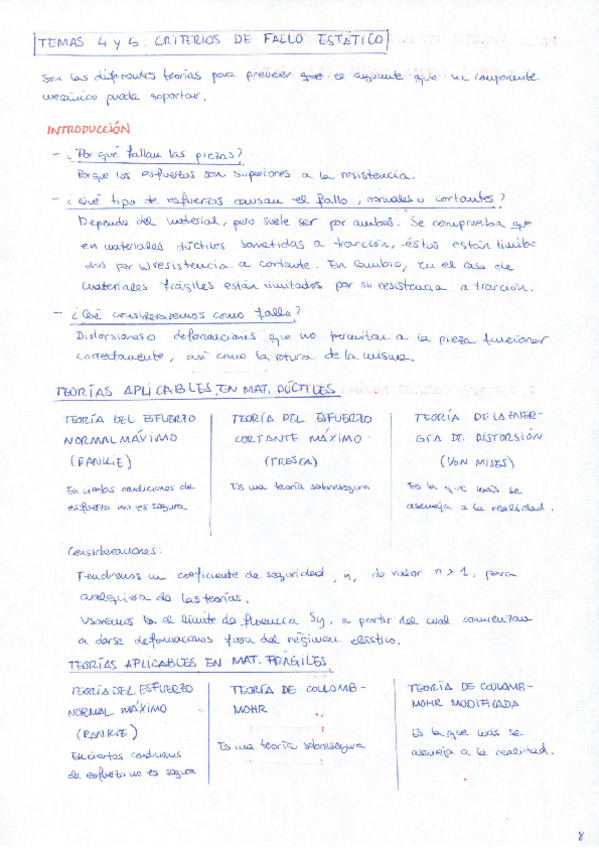 TEMAS 4 y 5: CRITERIOS DE FALLO ESTÁTICO
Son las diferentes teorías para preveer que es aguante que un componente
mecánico pueda soportar.
INTRODUCCIÓN
- ¿Por qué fallan las piezas?
Porque los esfuerzos son superiores a la resistencia.
- ¿Qué tipo de esfuerzos causan el fallo, normales o cortantes?
Depende del material, pero suele ser por ambos. Se comprueba que
en materiales dúctiles sometidas a tracción, éstos están limita-
dos por su resistencia a cortante. En cambio, en el caso de
materiales frágiles están limitados por su resistencia a tracción.
- ¿Qué consideraremos como fallo?
Distorsiones o deformaciones que no permitan a la pieza funcionar
correctamente, así como la rotura de la misma.
TEORÍAS APLICABLES EN MAT. DÚCTILES
TEORÍA DEL ESFUERZO
NORMAL MÁXIMO
(RANKIE)
En ciertas condiciones de
esfuerzo no es segura
TEORÍA DEL ESFUERZO
CORTANTE MÁXIMO
(TRESCA)
Es una teoría sobresegura
TEORÍA DE LA ENER-
GÍA DE DISTORSIÓN
(VON MISES)
Es la que más se
asemeja a la realidad.
Consideraciones:
Tendremos un coeficiente de seguridad, n, de valor n > 1, para
cualquiera de las teorías.
Usaremos el límite de fluencia Sy, a partir del cual comienzan
a darse deformaciones fuera del régimen elástico.
TEORÍAS APLICABLES EN MAT. FRÁGILES
TEORÍA DEL ESFUERZO
NORMAL MÁXIMO
(RANKIE)
En ciertas condiciones
de esfuerzo no es segura
TEORÍA DE COULOMB-
MOHR
Es una teoría sobresegura
TEORÍA DE COULOMB-
MOHR MODIFICADA
Es la que más se
asemeja a la realidad.
8